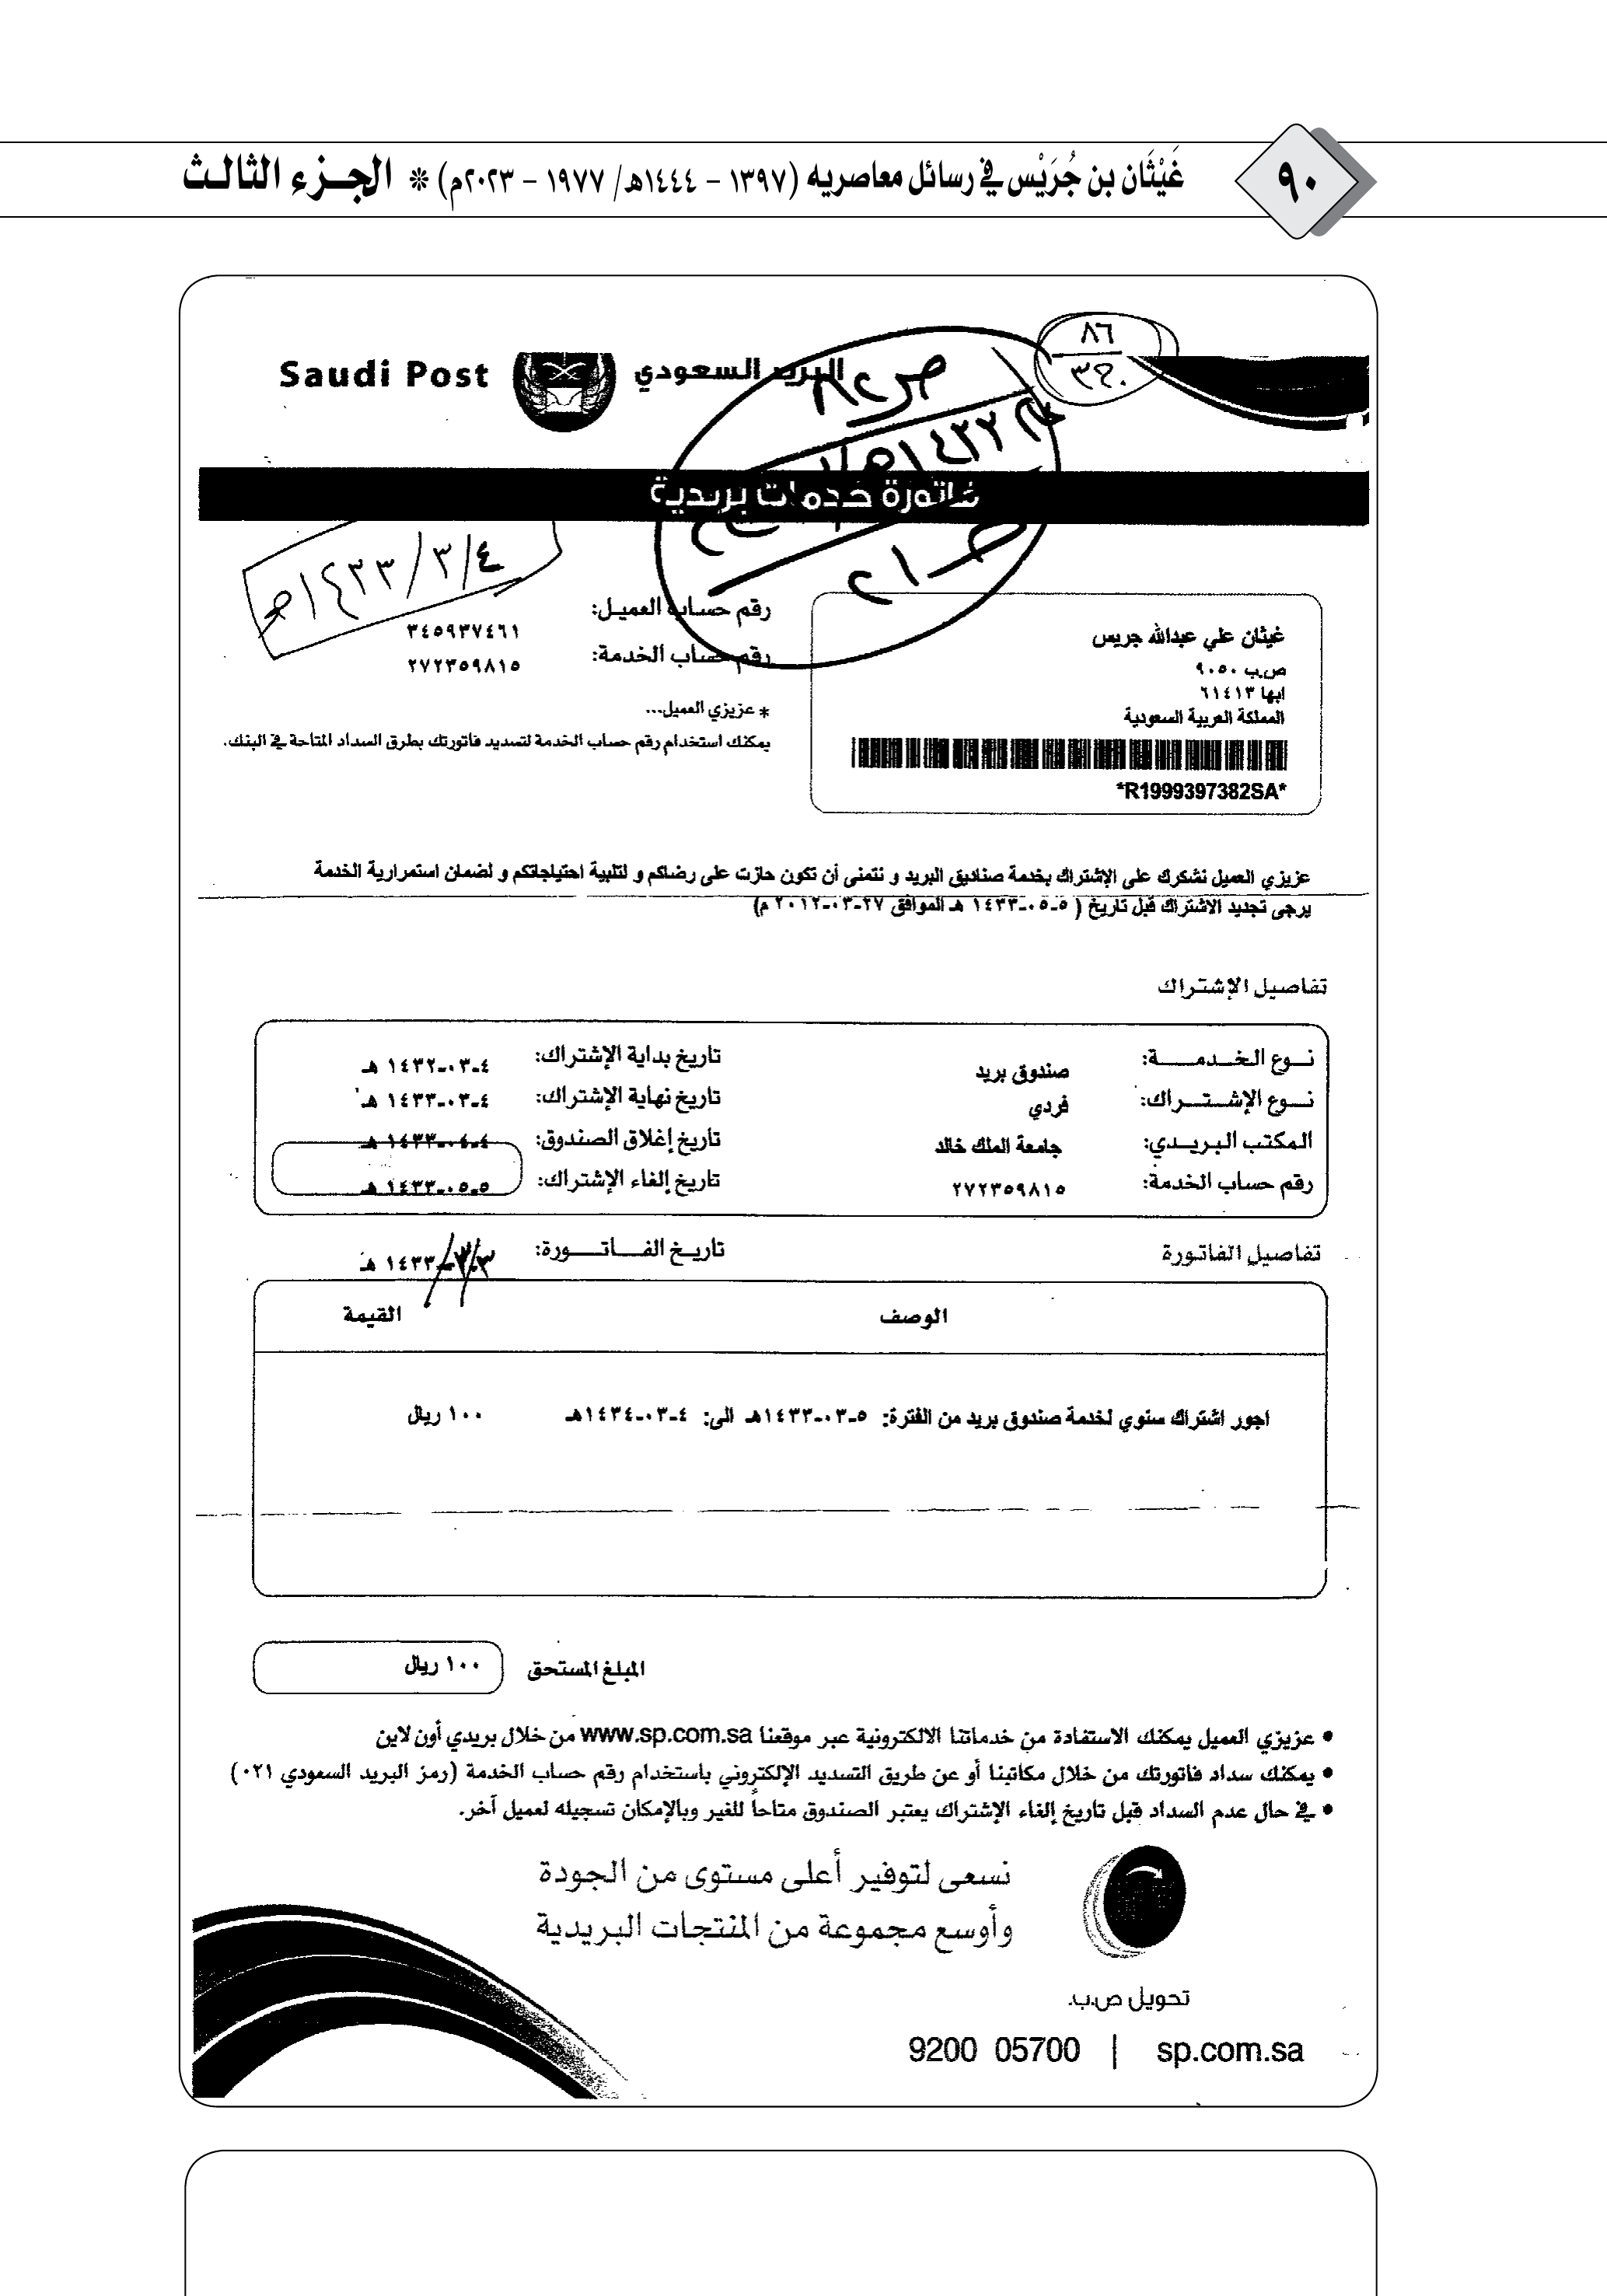 ٩٠
غَيْثَان بن جُرَيْس في رسائل معاصريه (١٣٩٧ – ١٤٤٤هـ/ ١٩٧٧ – ٢٠٢٣م) * الجـزء الثالث
٨٦
٣٢٠
البريد السعودي Saudi Post
فاتورة خدمات بريدية
٤/٣/١٤٣٣هـ
غيثان علي عبدالله جريس
ص.ب ٩٠٥٠
ابها ٦١٤١٣
المملكة العربية السعودية
*R1999397382SA*
رقم حساب العميـل: ٣٤٥٩٣٧٤٦١
رقم حساب الخدمة: ٢٧٢٣٥٩٨١٥
* عزيزي العميل...
يمكنك استخدام رقم حساب الخدمة لتسديد فاتورتك بطرق السداد المتاحة في البنك.
عزيزي العميل نشكرك على الإشتراك بخدمة صناديق البريد و نتمنى أن تكون حازت على رضاكم و لتلبية احتياجاتكم و لضمان استمرارية الخدمة
يرجى تجديد الاشتراك قبل تاريخ ( ٥-٠٥-١٤٣٣ هـ الموافق ٢٧-٠٣-٢٠١٢ م)
تفاصيل الإشتراك
نــوع الخــدمـــــة: صندوق بريد تاريخ بداية الإشتراك: ٤-٠٣-١٤٣٢ هـ
نــوع الإشــتــراك: فردي تاريخ نهاية الإشتراك: ٤-٠٣-١٤٣٣ هـ
المكتب البريــدي: جامعة الملك خالد تاريخ إغلاق الصندوق: ٤-٠٤-١٤٣٣ هـ
رقم حساب الخدمة: ٢٧٢٣٥٩٨١٥ تاريخ إلغاء الإشتراك: ٥-٠٥-١٤٣٣ هـ
تفاصيل الفاتورة تاريـخ الفـــاتـــــورة: ٣-٣-١٤٣٣ هـ
الوصف القيمة
اجور اشتراك سنوي لخدمة صندوق بريد من الفترة: ٥-٠٣-١٤٣٣هـ الى: ٤-٠٣-١٤٣٤هـ ١٠٠ ريال
المبلغ المستحق ١٠٠ ريال
• عزيزي العميل يمكنك الاستفادة من خدماتنا الالكترونية عبر موقعنا www.sp.com.sa من خلال بريدي أون لاين
• يمكنك سداد فاتورتك من خلال مكاتبنا أو عن طريق التسديد الإلكتروني باستخدام رقم حساب الخدمة (رمز البريد السعودي ٠٢١)
• في حال عدم السداد قبل تاريخ إلغاء الإشتراك يعتبر الصندوق متاحاً للغير وبالإمكان تسجيله لعميل آخر.
نسعى لتوفير أعلى مستوى من الجودة
وأوسع مجموعة من المنتجات البريدية
تحويل ص.ب.
9200 05700 | sp.com.sa